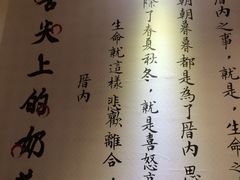 內之事，就是
朝朝暮暮都是為了厝內思
除了春夏秋冬，就是喜怒哀
生命就這樣悲歡離合，
厝內
舌尖上的奶茶